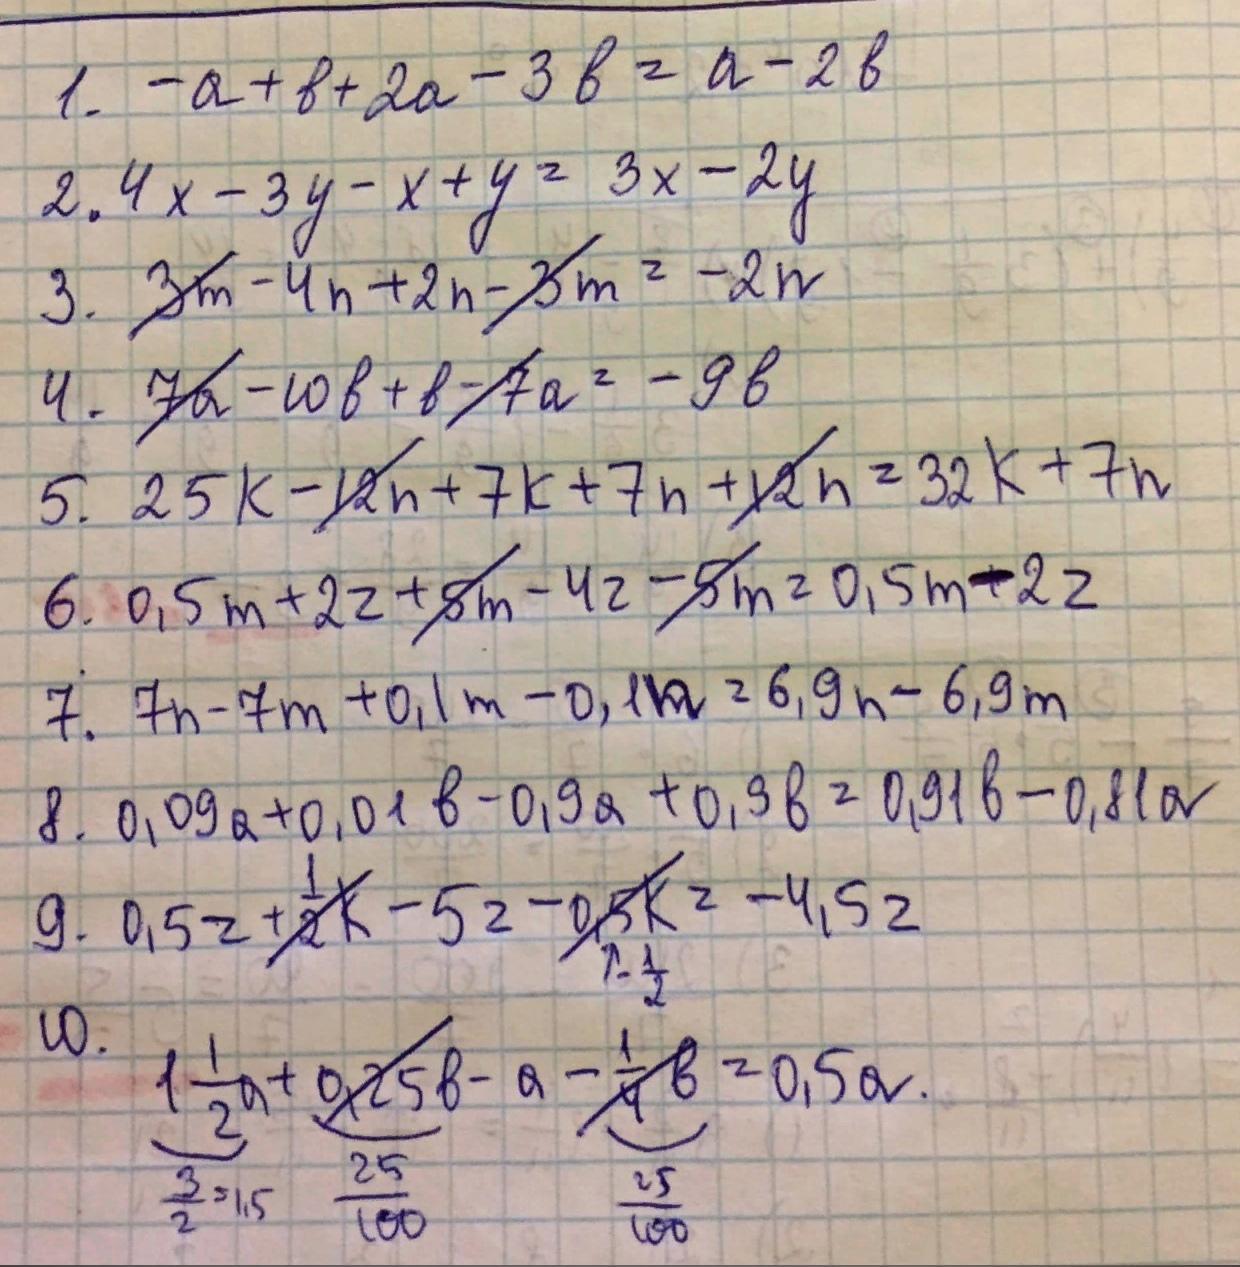 1. -a+b+2a-3b=a-2b
2. 4x-3y-x+y=3x-2y
3. 3m-4n+2n-3m=-2n
4. 7a-10b+b-7a=-9b
5. 25k-12n+7k+7n+12n=32k+7n
6. 0,5m+2z+5m-4z-5m=0,5m-2z
7. 7n-7m+0,1m-0,1n=6,9n-6,9m
8. 0,09a+0,01b-0,9a+0,9b=0,91b-0,81a
9. 0,5z+1/2k-5z-0,5k=-4,5z
↑-1/2
10. 1 1/2a+0,25b-a-1/4b=0,5a.
3/2=1,5 25/100 25/100